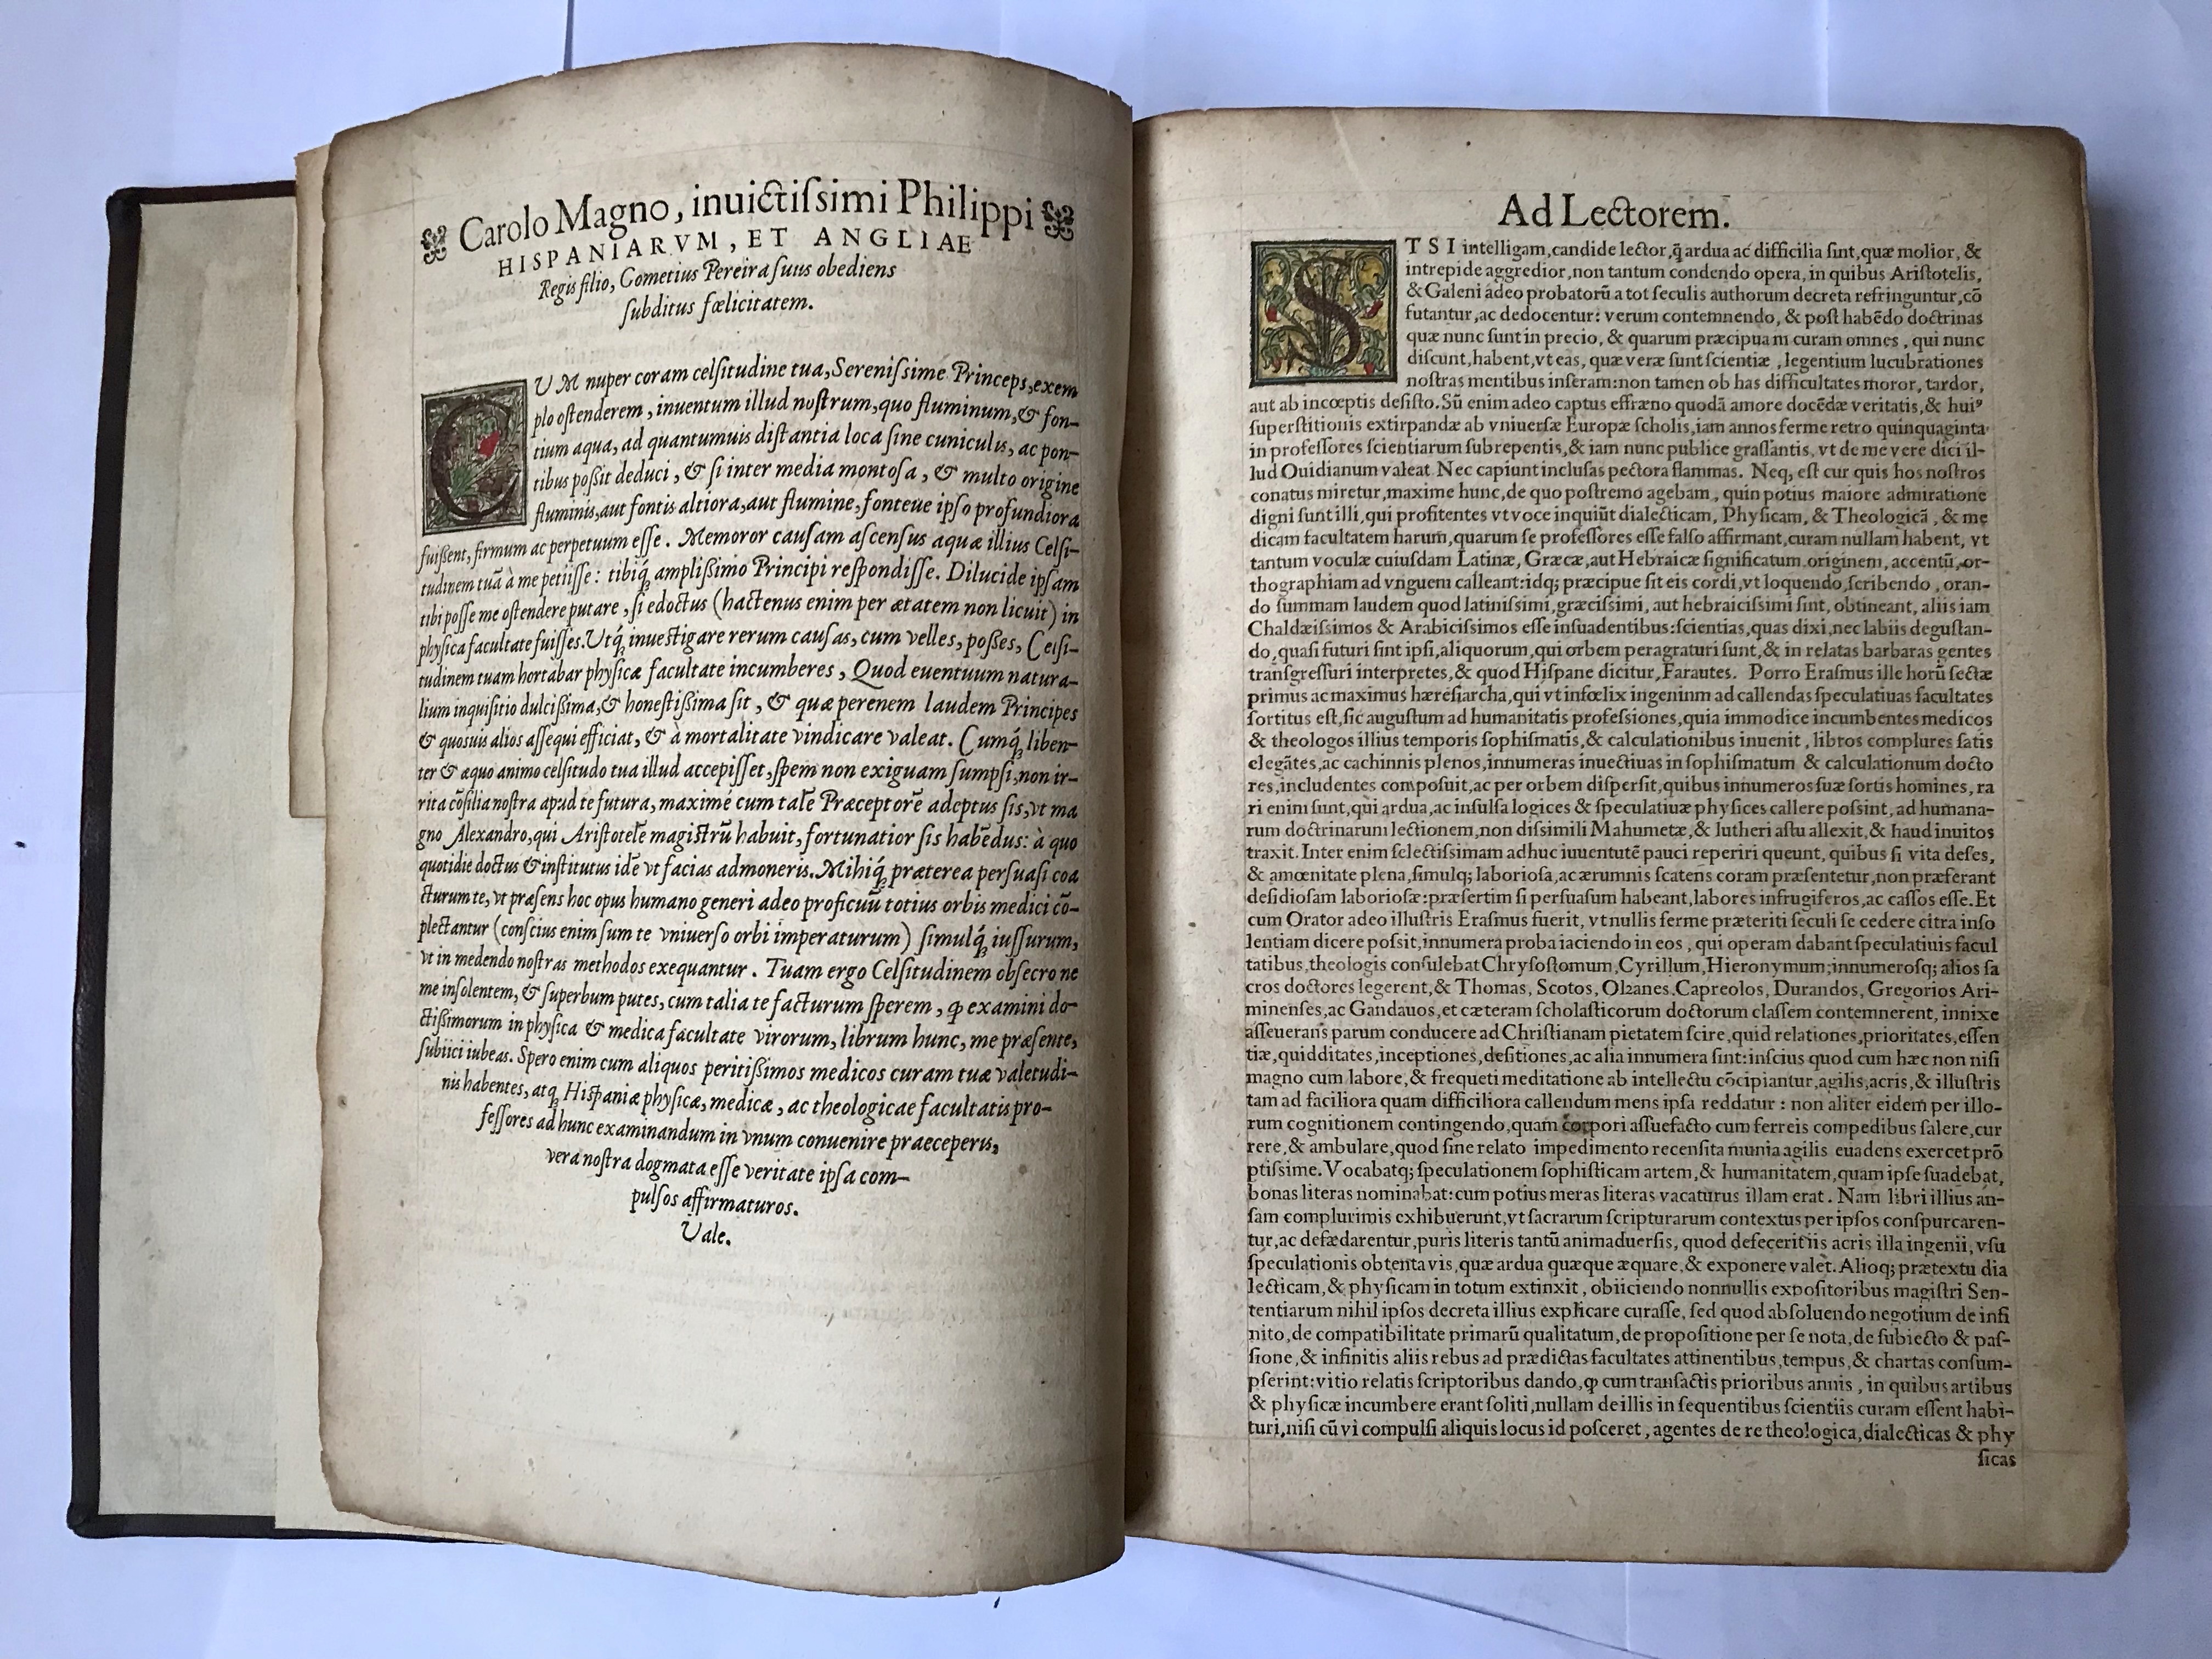 Carolo Magno, inuictiſsimi Philippi
HISPANIARVM, ET ANGLIAE
Regis filio, Gometius Pereira ſuus obediens
ſubditus fœlicitatem.
CUM nuper coram celſitudine tua, Sereniſsime Princeps, exem
plo oſtenderem, inuentum illud noſtrum, quo fluminum, & fon-
tium aqua, ad quantumuis diſtantia loca ſine cuniculis, ac pon-
tibus poſsit deduci, & ſi inter media montoſa, & multo origine
fluminis, aut fontis altiora, aut flumine, fonteue ipſo profundiora
fuiſſent, firmum ac perpetuum eſſe. Memoror cauſam aſcenſus aquæ illius Celſi-
tudinem tuã à me petiiſſe: tibiq́; ampliſsimo Principi reſpondiſſe. Dilucide ipſam
tibi poſſe me oſtendere putare, ſi edoctus (hactenus enim per ætatem non licuit) in
phyſica facultate fuiſſes. Utq́; inueſtigare rerum cauſas, cum velles, poſſes, Celſi-
tudinem tuam hortabar phyſicæ facultate incumberes, Quod euentuum natura-
lium inquiſitio dulciſsima, & honeſtiſsima ſit, & quæ perenem laudem Principes
& quosuis alios aſſequi efficiat, & à mortalitate vindicare valeat. Cumq́; liben-
ter & æquo animo celſitudo tua illud accepiſſet, ſpem non exiguam ſumpſi, non ir-
rita cõſilia noſtra apud te futura, maximé cum talẽ Præceptorẽ adeptus ſis, vt ma
gno Alexandro, qui Ariſtotelẽ magiſtrũ habuit, fortunatior ſis habẽdus: à quo
quotidie doctus & inſtitutus idẽ vt facias admoneris. Mihiq́; præterea perſuaſi coa
cturum te, vt præſens hoc opus humano generi adeo proficuũ totius orbis medici cõ-
plectantur (conſcius enim ſum te vniuerſo orbi imperaturum) ſimulq́; iuſſurum,
vt in medendo noſtras methodos exequantur. Tuam ergo Celſitudinem obſecro ne
me inſolentem, & ſuperbum putes, cum talia te facturum ſperem, ꝙ examini do-
ctiſsimorum in phyſica & medica facultate virorum, librum hunc, me præſente,
ſubiici iubeas. Spero enim cum aliquos peritiſsimos medicos curam tuæ valetudi-
nis habentes, atq; Hiſpaniæ phyſicæ, medicæ, ac theologicae facultatis pro-
feſſores ad hunc examinandum in vnum conuenire praeceperis,
vera noſtra dogmata eſſe veritate ipſa com-
pulſos affirmaturos.
Vale.
Ad Lectorem.
S TSI intelligam, candide lector, q̃ ardua ac difficilia ſint, quæ molior, &
intrepide aggredior, non tantum condendo opera, in quibus Ariſtotelis,
& Galeni adeo probatorũ a tot ſeculis authorum decreta refringuntur, cõ
futantur, ac dedocentur: verum contemnendo, & poſt habẽdo doctrinas
quæ nunc ſunt in precio, & quarum præcipuam curam omnes, qui nunc
diſcunt, habent, vt eas, quæ veræ ſunt ſcientiæ, legentium lucubrationes
noſtras mentibus inſeram: non tamen ob has difficultates moror, tardor,
aut ab incœptis deſiſto. Sũ enim adeo captus effræno quodã amore docẽdæ veritatis, & huiꝰ
ſuperſtitionis extirpandæ ab vniuerſæ Europæ ſcholis, iam annos ferme retro quinquaginta
in profeſſores ſcientiarum ſubrepentis, & iam nunc publice graſſantis, vt de me vere dici il-
lud Ouidianum valeat Nec capiunt incluſas pectora flammas. Neq; eſt cur quis hos noſtros
conatus miretur, maxime hunc, de quo poſtremo agebam, quin potius maiore admiratione
digni ſunt illi, qui profitentes vt voce inquiũt dialecticam, Phyſicam, & Theologicã, & me
dicam facultatem harum, quarum ſe profeſſores eſſe falſo affirmant, curam nullam habent, vt
tantum voculæ cuiuſdam Latinæ, Græcæ, aut Hebraicæ ſignificatum originem, accentũ, or-
thographiam ad vnguem calleant: idq; præcipue ſit eis cordi, vt loquendo, ſcribendo, oran-
do ſummam laudem quod latiniſſimi, græciſſimi, aut hebraiciſſimi ſint, obtineant, aliis iam
Chaldæiſſimos & Arabiciſſimos eſſe inſuadentibus: ſcientias, quas dixi, nec labiis deguſtan-
do, quaſi futuri ſint ipſi, aliquorum, qui orbem peragraturi ſunt, & in relatas barbaras gentes
tranſgreſſuri interpretes, & quod Hiſpane dicitur, Farautes. Porro Eraſmus ille horũ ſectæ
primus ac maximus hæreſiarcha, qui vt infœlix ingenium ad callendas ſpeculatiuas facultates
ſortitus eſt, ſic auguſtum ad humanitatis profeſsiones, quia immodice incumbentes medicos
& theologos illius temporis ſophiſmatis, & calculationibus inuenit, libros complures ſatis
elegãtes, ac cachinnis plenos, innumeras inuectiuas in ſophiſmatum & calculationum docto
res, includentes compoſuit, ac per orbem diſperſit, quibus innumeros ſuæ ſortis homines, ra
ri enim ſunt, qui ardua, ac inſulſa logices & ſpeculatiuæ phyſices callere poſsint, ad humana-
rum doctrinarum lectionem, non diſsimili Mahumetæ, & lutheri aſtu allexit, & haud inuitos
traxit. Inter enim ſelectiſsimam adhuc iuuentutẽ pauci reperiri queunt, quibus ſi vita deſes,
& amœnitate plena, ſimulq; laborioſa, ac ærumnis ſcatens coram præſentetur, non præferant
deſidioſam laborioſæ: præſertim ſi perſuaſum habeant, labores infrugiferos, ac caſſos eſſe. Et
cum Orator adeo illuſtris Eraſmus fuerit, vt nullis ferme præteriti ſeculi ſe cedere citra inſo
lentiam dicere poſsit, innumera proba iaciendo in eos, qui operam dabant ſpeculatiuis facul
tatibus, theologis conſulebat Chryſoſtomum, Cyrillum, Hieronymum; innumeroſq; alios ſa
cros doctores legerent, & Thomas, Scotos, Olzanes, Capreolos, Durandos, Gregorios Ari-
minenſes, ac Gandauos, et cæteram ſcholaſticorum doctorum claſſem contemnerent, innixe
aſſeuerans parum conducere ad Chriſtianam pietatem ſcire, quid relationes, prioritates, eſſen
tiæ, quidditates, inceptiones, deſitiones, ac alia innumera ſint: inſcius quod cum hæc non niſi
magno cum labore, & frequeti meditatione ab intellectu cõcipiantur, agilis, acris, & illuſtris
tam ad faciliora quam difficiliora callendum mens ipſa reddatur: non aliter eidem per illo-
rum cognitionem contingendo, quam corpori aſſuefacto cum ferreis compedibus ſalere, cur
rere, & ambulare, quod ſine relato impedimento recenſita munia agilis euadens exercet prõ
ptiſsime. Vocabatq; ſpeculationem ſophiſticam artem, & humanitatem, quam ipſe ſuadebat,
bonas literas nominabat: cum potius meras literas vacaturus illam erat. Nam libri illius an-
ſam complurimis exhibuerunt, vt ſacrarum ſcripturarum contextus per ipſos conſpurcaren-
tur, ac defædarentur, puris literis tantũ animaduerſis, quod defecerit iis acris illa ingenii, vſu
ſpeculationis obtenta vis, quæ ardua quæque æquare, & exponere valet. Alioq; prætextu dia
lecticam, & phyſicam in totum extinxit, obiiciendo nonnullis expoſitoribus magiſtri Sen-
tentiarum nihil ipſos decreta illius explicare curaſſe, ſed quod abſoluendo negotium de infi
nito, de compatibilitate primarũ qualitatum, de propoſitione per ſe nota, de ſubiecto & paſ-
ſione, & infinitis aliis rebus ad prædictas facultates attinentibus, tempus, & chartas conſum-
pſerint: vitio relatis ſcriptoribus dando, ꝙ cum tranſactis prioribus annis, in quibus artibus
& phyſicæ incumbere erant ſoliti, nullam de illis in ſequentibus ſcientiis curam eſſent habi-
turi, niſi cũ vi compulſi aliquis locus id poſceret, agentes de re theologica, dialecticas & phy
ſicas